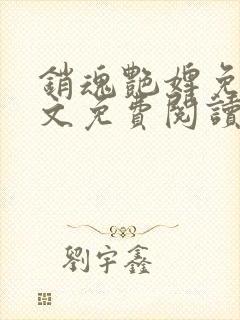 銷魂艷婢免
文免費閱讀
劉宇鑫